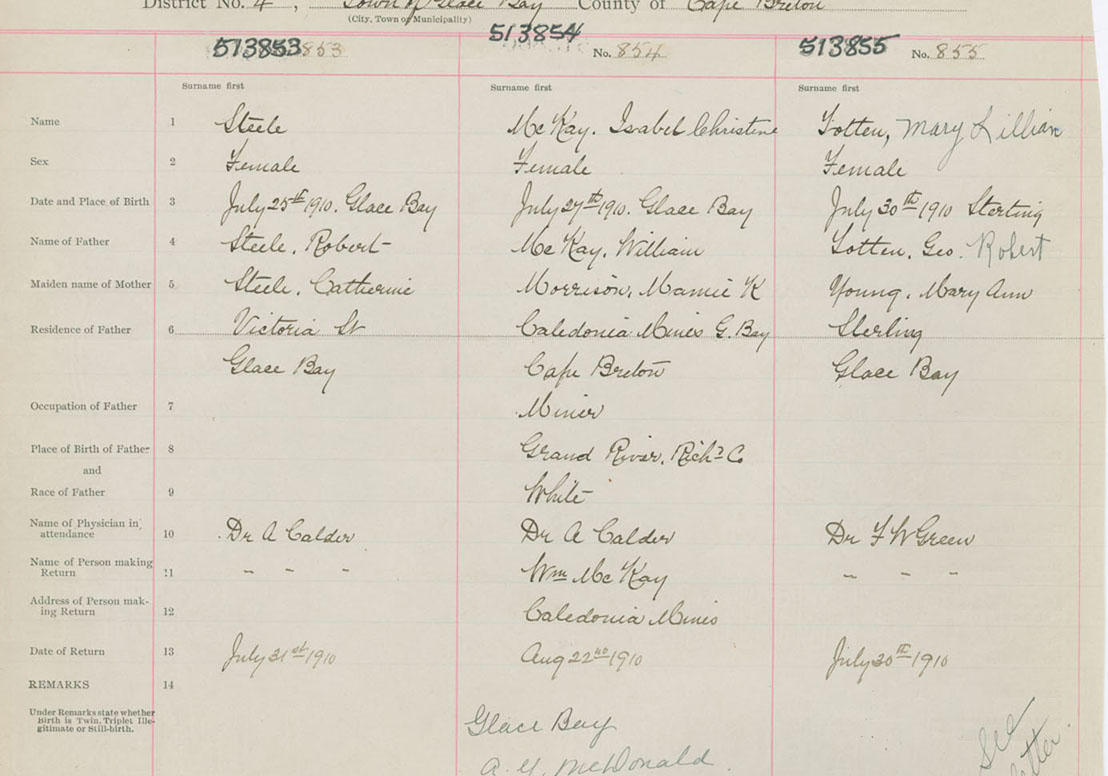 District No. 4, Town of Glace Bay County of Cape Breton
(City, Town or Municipality)
513853 853 513854 No. 854 513855 No. 855
Surname first Surname first Surname first
Name 1 Steele McKay. Isabel Christine Totten, Mary Lillian
Sex 2 Female Female Female
Date and Place of Birth 3 July 25th 1910. Glace Bay July 27th 1910. Glace Bay July 30th 1910 Sterling
Name of Father 4 Steele. Robert McKay. William Totten. Geo. Robert
Maiden name of Mother 5 Steele. Catherine Morrison, Mamie K Young. Mary Ann
Residence of Father 6 Victoria St Caledonia Mines G. Bay Sterling
Glace Bay Cape Breton Glace Bay
Occupation of Father 7 Miner
Place of Birth of Father 8 Grand River. Richd Co
and
Race of Father 9 White
Name of Physician in attendance 10 Dr A Calder Dr A Calder Dr F W Green
Name of Person making Return 11 - - - Wm McKay - - -
Address of Person making Return 12 Caledonia Mines
Date of Return 13 July 31st 1910 Aug 22nd 1910 July 30th 1910
REMARKS 14
Under Remarks state whether
Birth is Twin, Triplet Ille-
gitimate or Still-birth.
Glace Bay
A. Y. McDonald.
See
letter